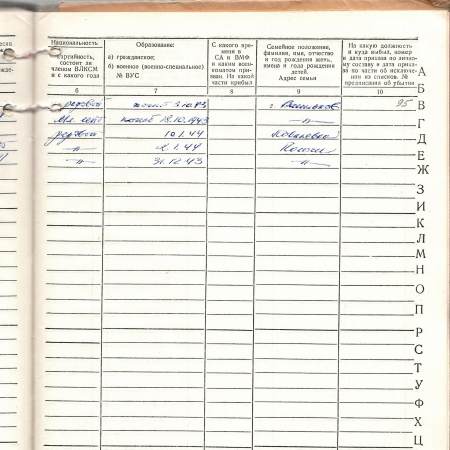 Национальность
Партийность, состоит ли членом ВЛКСМ и с какого года
Образование:
а) гражданское;
б) военное (военно-специальное)
№ ВУС
С какого времени в СА и ВМФ и каким военкоматом призван. Из какой части прибыл
Семейное положение, фамилия, имя, отчество и год рождения жены, имена и год рождения детей.
Адрес семьи
На какую должность и куда выбыл, номер и дата приказа по личному составу и дата приказа по части об исключении из списков. № предписания об убытии
6 7 8 9 10
рядовой погиб 3.10.43 г. 95
Мл. сент погиб 18.10.1943 —"—
рядовой 10.1.44 Ковалевка
—"— 2.1.44
—"— 31.12.43 —"—
А
Б
В
Г
Д
Е
Ж
З
И
К
Л
М
Н
О
П
Р
С
Т
У
Ф
Х
Ц